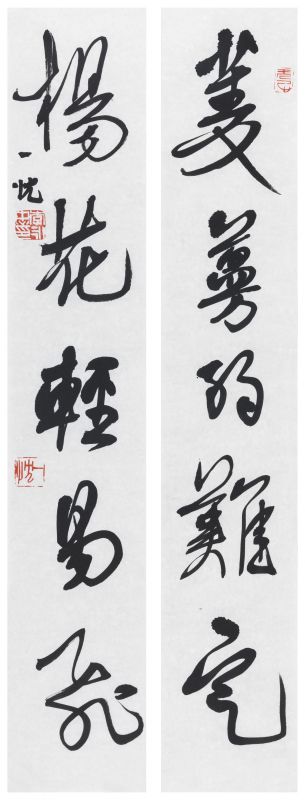 菱蔓弱難定
楊花輕易飛
一忱